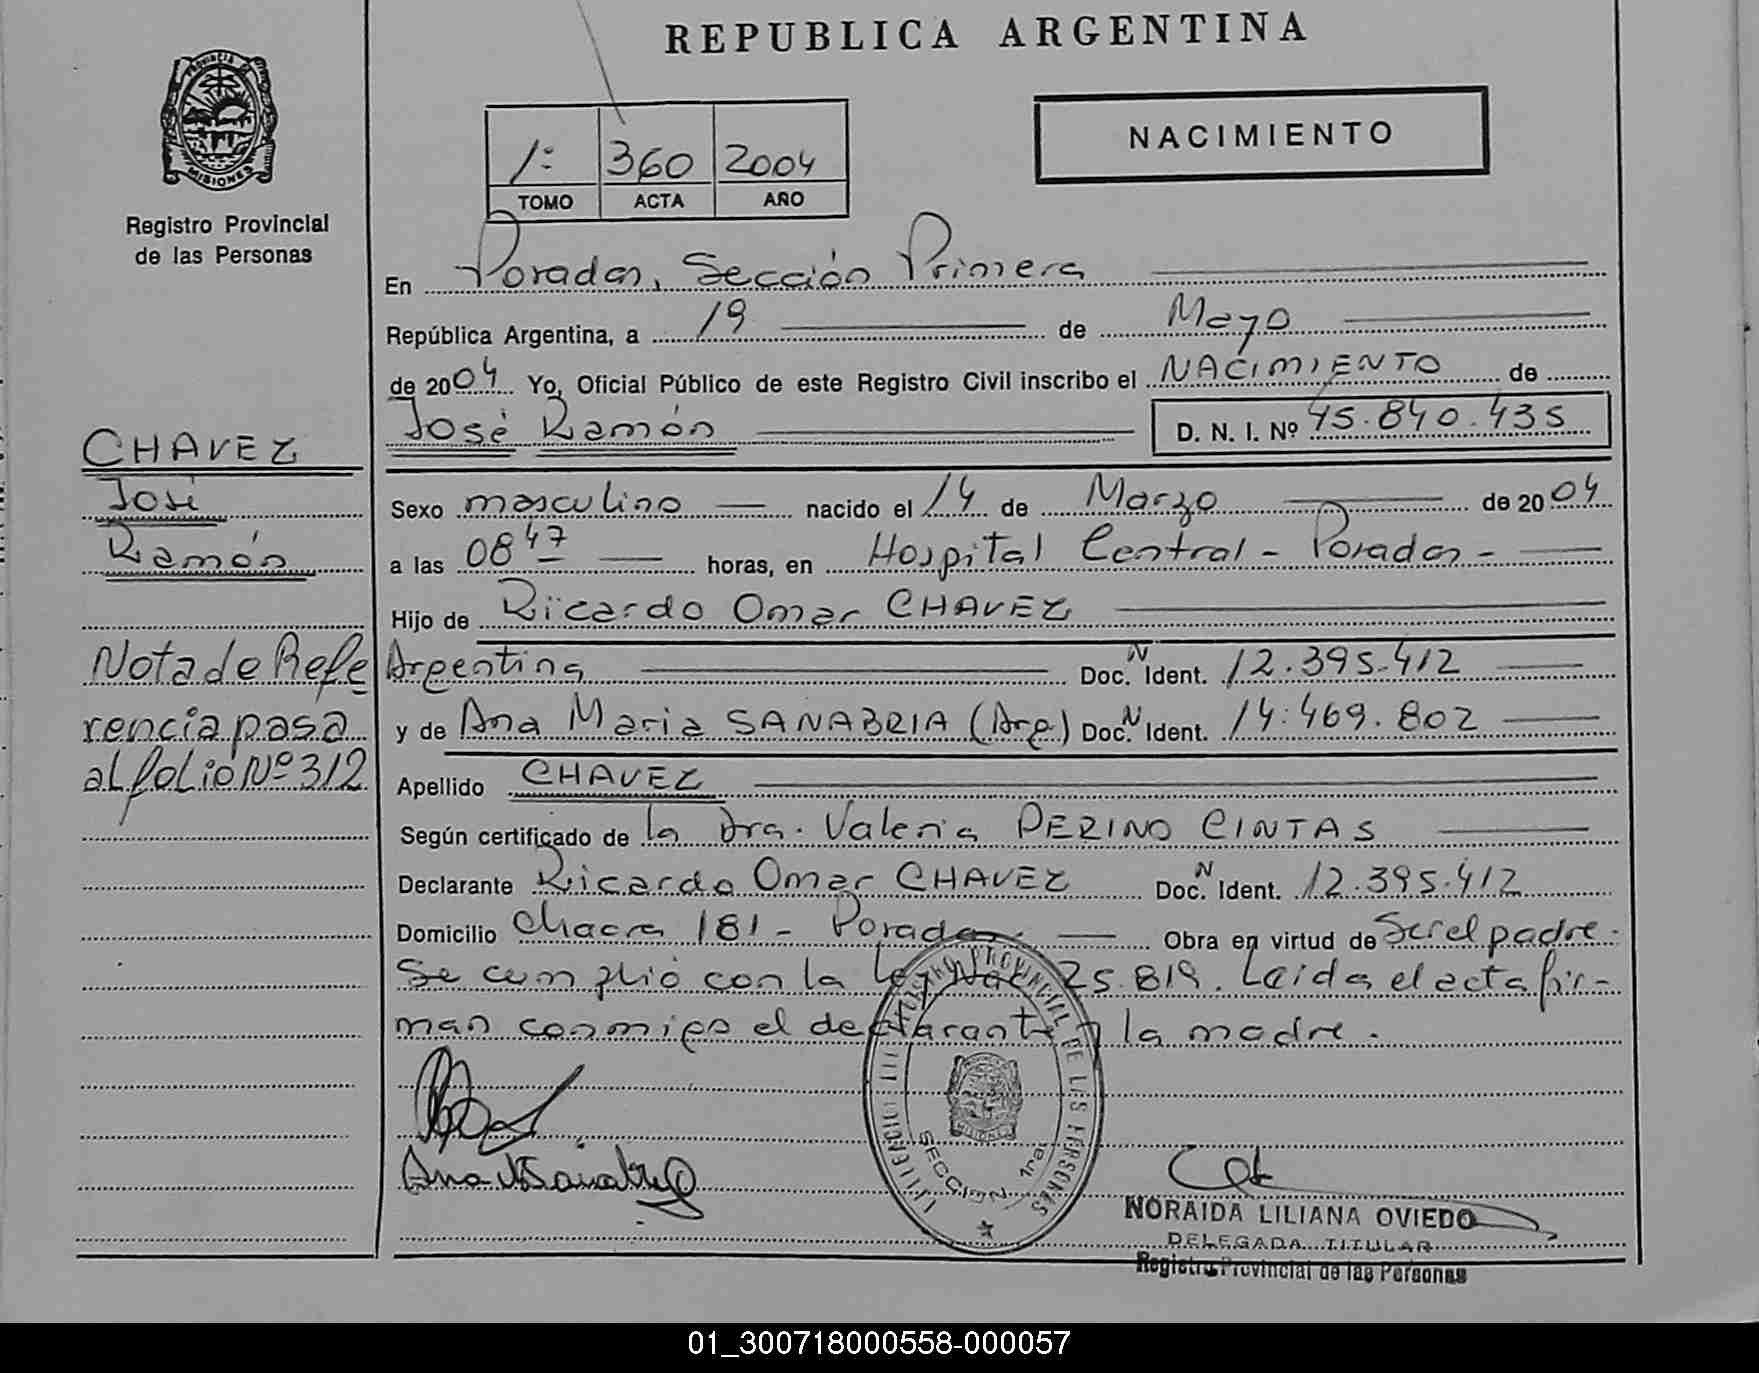 REPUBLICA ARGENTINA
PROVINCIA DE
MISIONES
Registro Provincial
de las Personas
NACIMIENTO
1º 360 2004
TOMO ACTA AÑO
En Posadas, Sección Primera
República Argentina, a 19 de Mayo
de 2004 Yo, Oficial Público de este Registro Civil inscribo el NACIMIENTO de
José Ramón D. N. I. Nº 45.840.435
CHAVEZ
José
Ramón
Sexo masculino nacido el 14 de Marzo de 2004
a las 08 47 horas, en Hospital Central - Posadas -
Hijo de Ricardo Omar CHAVEZ
Argentina Doc. N Ident. 12.395.412
y de Ana Maria SANABRIA (Arg) Doc. N Ident. 14.469.802
Nota de Refe
rencia pasa
al folio Nº 312
Apellido CHAVEZ
Según certificado de la Dra. Valeria PERINO CINTAS
Declarante Ricardo Omar CHAVEZ Doc. N Ident. 12.395.412
Domicilio Chacra 181 - Posadas. Obra en virtud de Ser el padre.
Se cumplió con la Ley Nac 25.819. Leida el acta fir-
man conmigo el declarante y la madre.
REGISTRO PROVINCIAL DE LAS PERSONAS
MISIONES
SECCION 1ra
NORAIDA LILIANA OVIEDO
DELEGADA TITULAR
Registro Provincial de las Personas
01_300718000558-000057